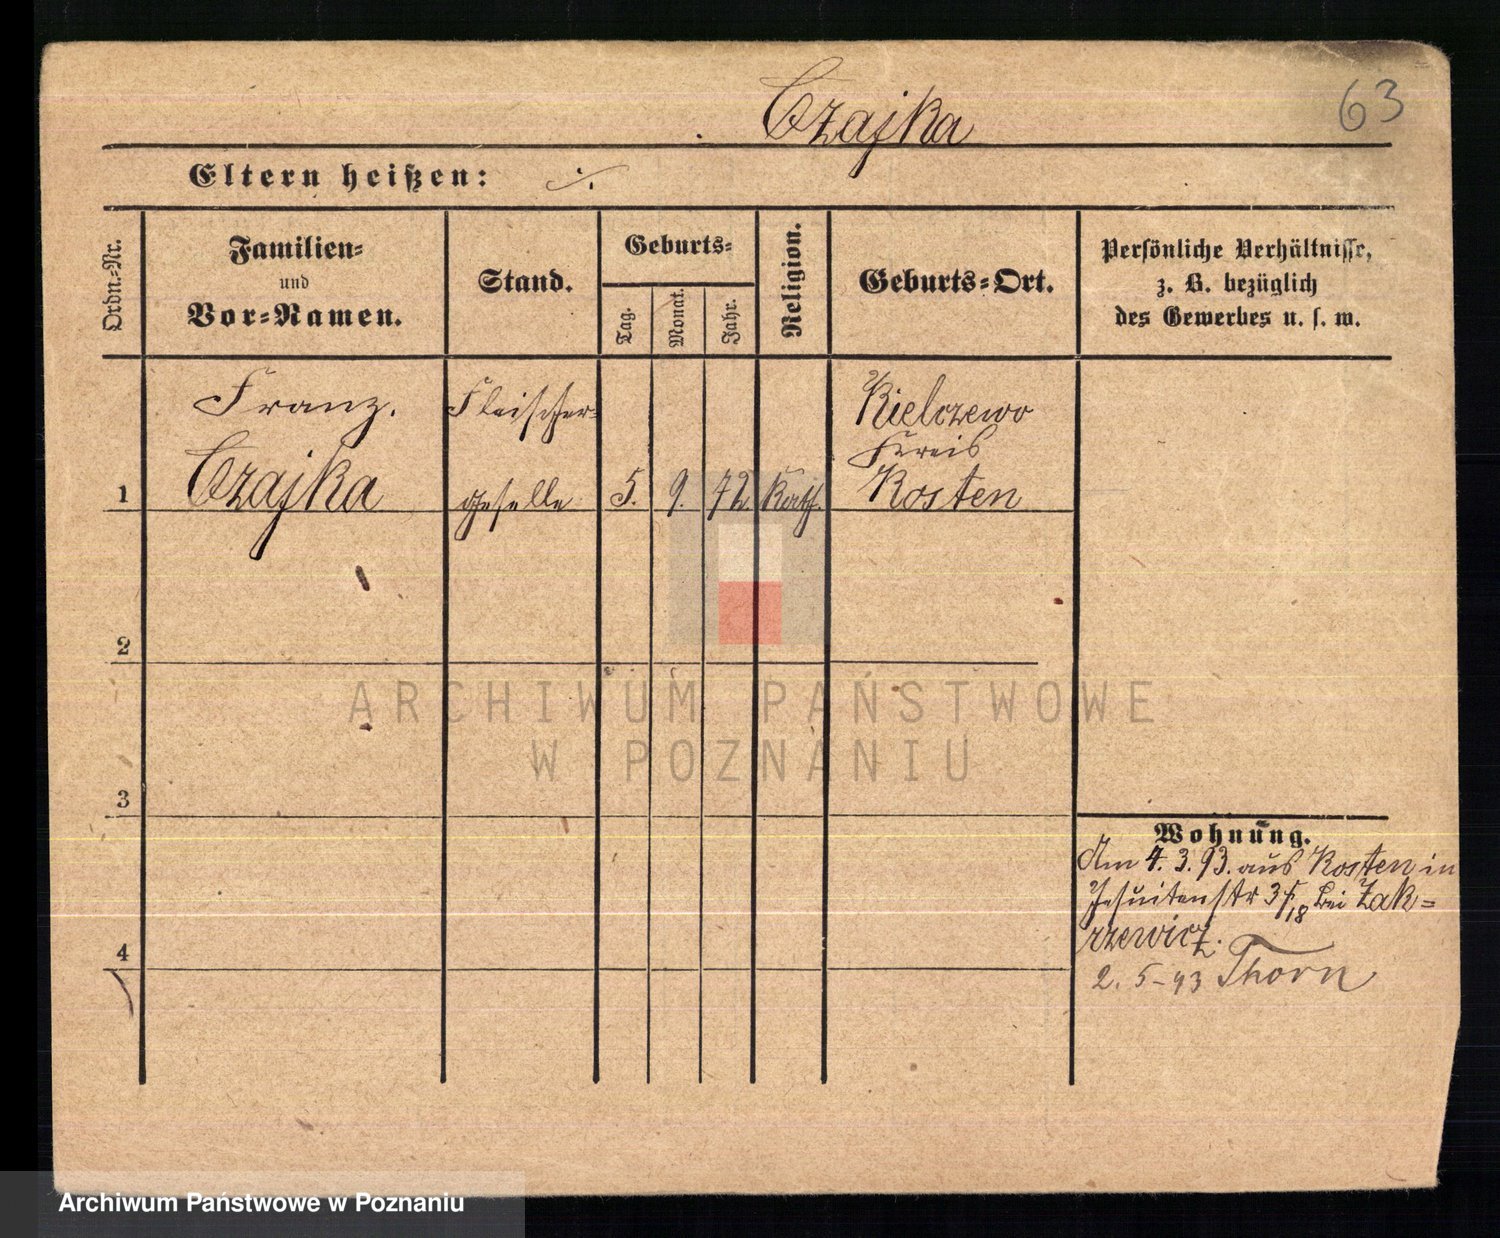 63
Czajka
Eltern heißen: ·/.
Ordn.-Nr.
Familien-
und
Vor-Namen.
Stand.
Geburts-
Tag.
Monat.
Jahr.
Religion.
Geburts-Ort.
Persönliche Verhältnisse,
z. B. bezüglich
des Gewerbes u. s. w.
1
Franz.
Czajka
Fleischer-
geselle
5.
9.
72.
Kath.
Kielczewo
Kreis
Kosten
2
3
4
Wohnung.
Am 4. 3. 93. aus Kosten in
Jesuitenstr bei Zak=
rzewicz.
2. 5-93 Thorn
ARCHIWUM PAŃSTWOWE
W POZNANIU
Archiwum Państwowe w Poznaniu